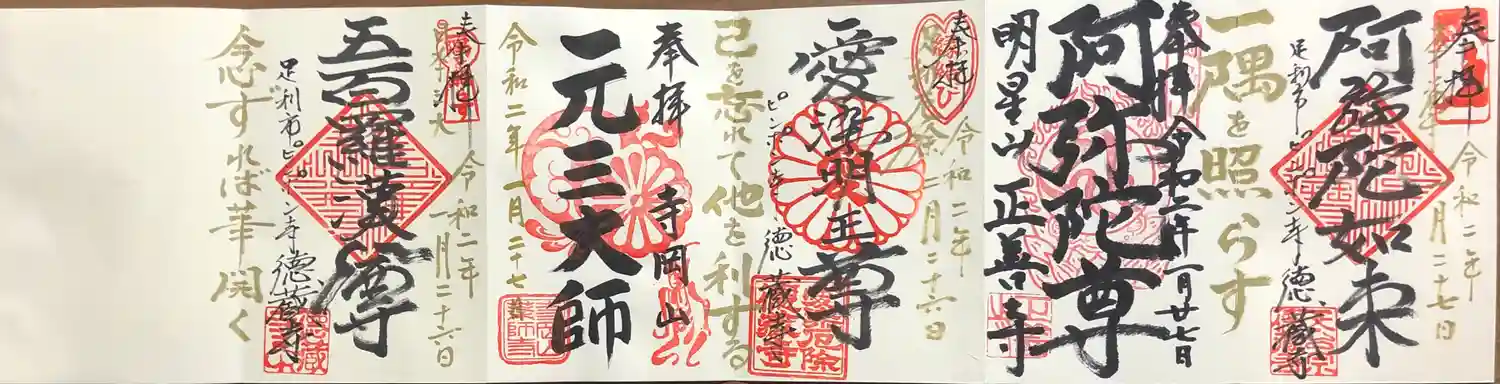 奉拝
令和二年
一月二十七日
阿弥陀如来
足利市ピンポン寺
徳蔵寺
一隅を照らす
奉拝
令和二年一月廿七日
阿弥陀尊
明星山
正善寺
奉拝
令和二年
一月二十六日
愛染明王尊
ピンポン寺
徳蔵寺
己を忘れて他を利する
奉拝
寺岡山
元三大師
令和二年一月二十七日
奉拝
令和二年
一月二十六日
五百羅漢尊
足利市ピンポン寺
徳蔵寺
念ずれば華開く